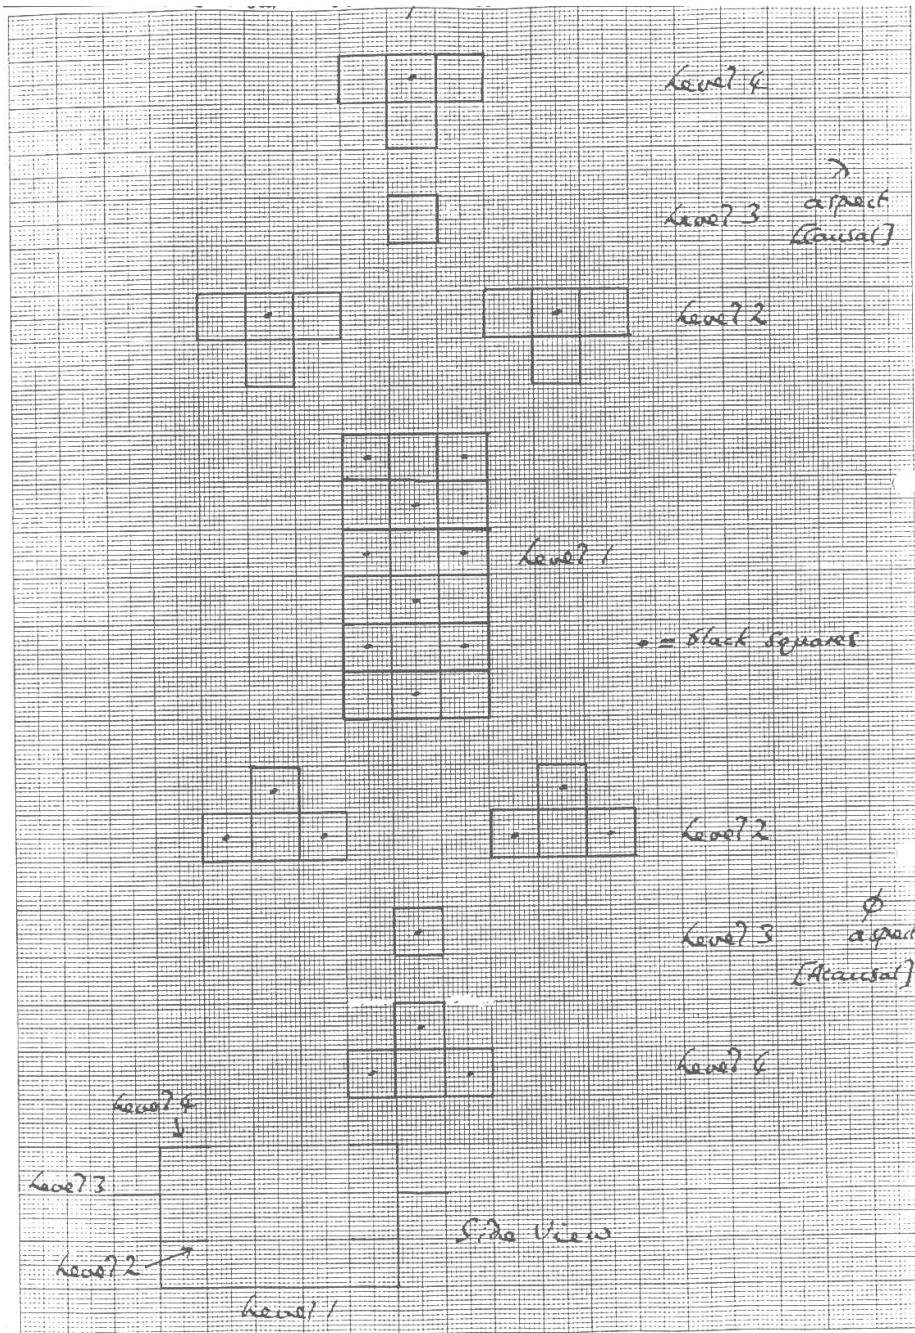 Level 4
λ
aspect
[Causal]
Level 3
Level 2
Level 1
• = black squares
Level 2
φ
aspect
[Acausal]
Level 3
Level 4
Level 4
Level 3
Side View
Level 2
Level 1